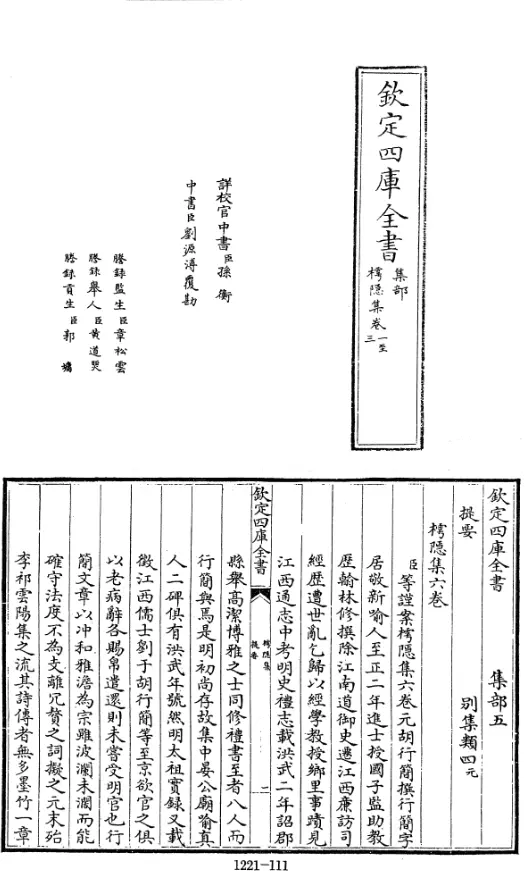 欽定四庫全書
集部
樗隱集卷一至三
詳校官中書臣孫衡
中書臣劉源溥覆勘
謄録監生臣章松雲
謄録舉人臣黄道煚
謄録貢生臣郭墉
欽定四庫全書
集部五
提要
别集類四元
樗隱集六卷
臣等謹案樗隱集六卷元胡行簡撰行簡字
居敬新喻人至正二年進士授國子監助教
歴翰林修撰除江南道御史遷江西亷訪司
經歴遭世亂乞歸以經學教授鄉里事蹟見
江西通志中考明史禮志載洪武二年詔郡
欽定四庫全書
樗隱集
提要
一
縣舉髙潔博雅之士同修禮書至者八人而
行簡與焉是明初尚存故集中晏公廟喻真
人二碑俱有洪武年號然明太祖實録又載
徵江西儒士劉于胡行簡等至京欲官之俱
以老病辭各賜帛遣還則未嘗受明官也行
簡文章以冲和雅澹為宗雖波瀾未濶而能
確守法度不為支離冗贅之詞擬之元末殆
李祁雲陽集之流其詩傳者無多墨竹一章
1221-111